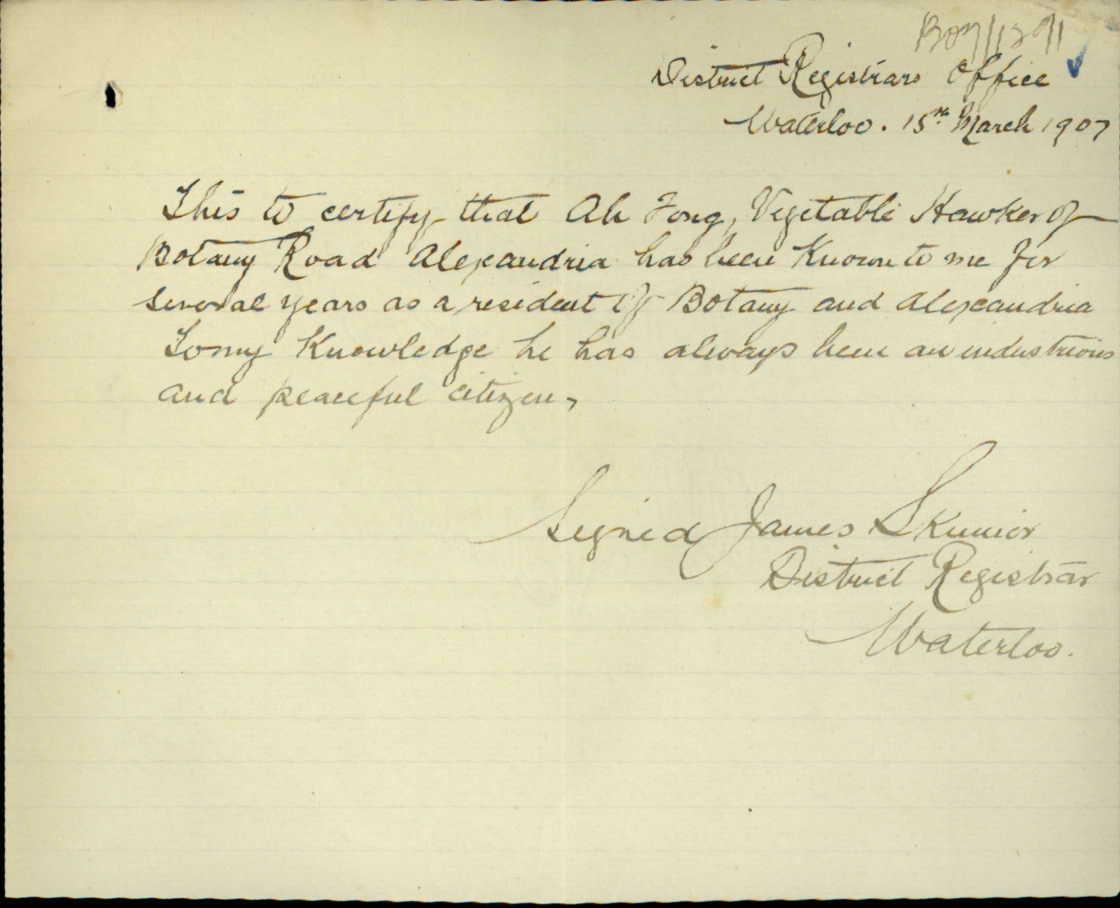 B07/1391
District Registrars Office
Waterloo. 15th March 1907
This to certify that Ah Fong, Vegetable Hawker of
Botany Road Alexandria has been Known to me for
several years as a resident of Botany and Alexandria
To my Knowledge he has always been an industrious
and peaceful citizen,
Signed James Skinnor
District Registrar
Waterloo.